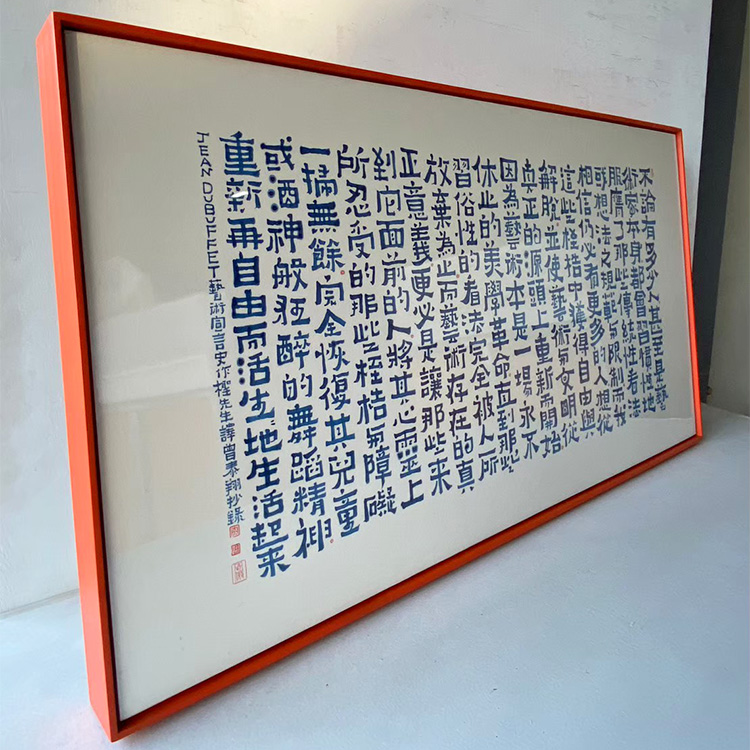 不論有多少人甚至是藝
術家本身都曾習慣性地
服膺了那些傳統性看法
或想法之規範與限制而我
相信仍必有更多的人想從
這些桎梏中獲得自由與
解脫並使藝術與文明從
真正的源頭上重新開始
因為藝術本是一場永不
休止的美學革命直到那些
習俗性的看法完全被人所
放棄為止而藝術存在的真
正意義更必是讓那些來
到它面前的人將其心靈上
所忍受的那些桎梏與障礙
一掃無餘完全恢復其兒童
或酒神般狂醉的舞蹈精神
重新再自由而活生:地生活起来
JEAN DUBUFFET藝術宣言史作檉先生譯曾泰翔抄錄